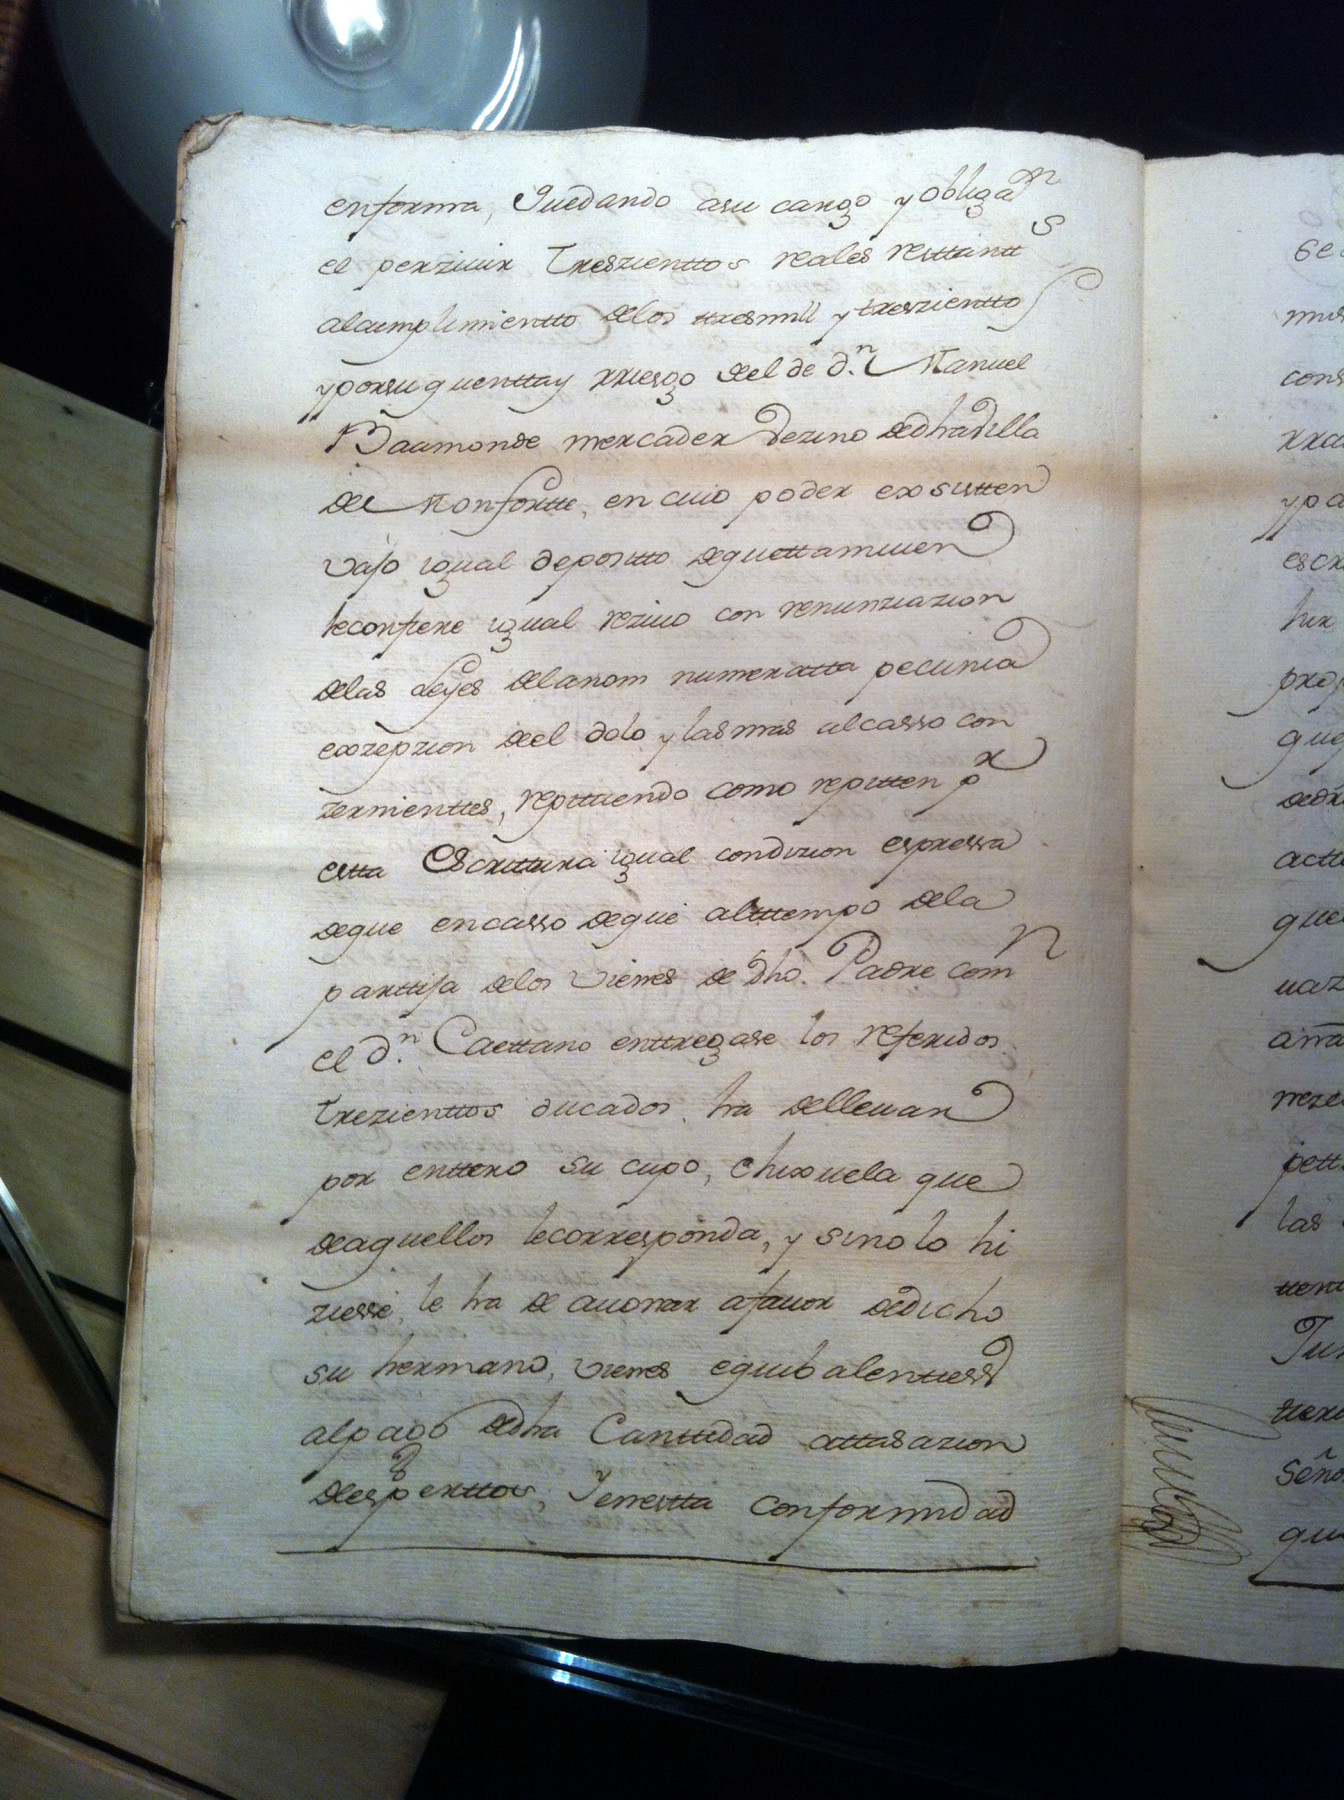 en forma, Quedando asu cargo y obligaon
el perziuir treszienttos reales resttantts
alcumplimientto delos ttresmill y treszienttos
y porsu quentta y rriesgo del de Dn. Manuel
Baamonde mercader vezino dedha villa
de Monfortte, en cuio poder exsistten
vajo igual depositto dequettamuien
leconfiere igual reziuo con renunziazion
delas Leyes delanom numeratta pecunia
exzepzion del dolo y lasmas alcasso con
zernienttes, repittiendo como repitten pr
estta Escrittura igual condizion espressa
deque encasso deque alttiempo dela
parttija delos vienes de dho. Padre comn
el Dn. Caettano enttregase los referidos
trezienttos ducados, ha dellevar
por enttero su cupo, e hixuela que
deaquellos lecorresponda, y sinolo hi
ziesse, le ha de auonar afauor dedicho
su hermano, vienes equibalenttess
alpago dedha Canttidad attasazion
deesperttos, Y enestta conformidad
se
mis
cons
rra
y pa
escr
hir
prop
que
dedr
acttu
que
uaz
rreze
pett
las
tteni
Jur
ttero
Seño
que